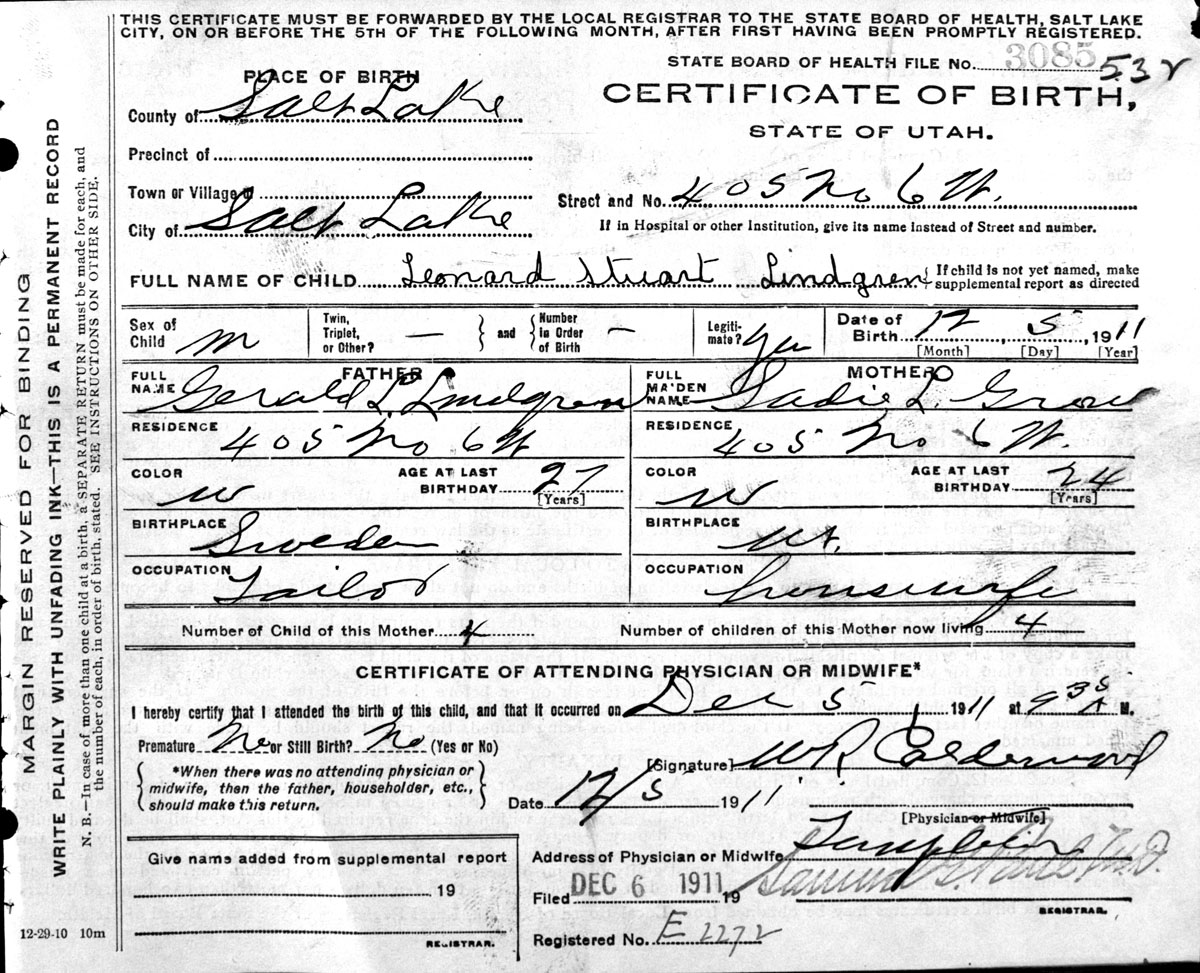 THIS CERTIFICATE MUST BE FORWARDED BY THE LOCAL REGISTRAR TO THE STATE BOARD OF HEALTH, SALT LAKE
CITY, ON OR BEFORE THE 5TH OF THE FOLLOWING MONTH, AFTER FIRST HAVING BEEN PROMPTLY REGISTERED.
MARGIN RESERVED FOR BINDING
WRITE PLAINLY WITH UNFADING INK—THIS IS A PERMANENT RECORD
N. B.—In case of more than one child at a birth, a SEPARATE RETURN must be made for each, and
the number of each, in order of birth, stated. SEE INSTRUCTIONS ON OTHER SIDE.
STATE BOARD OF HEALTH FILE No. 3085 532
PLACE OF BIRTH
CERTIFICATE OF BIRTH,
STATE OF UTAH.
County of Salt Lake
Precinct of
Town or Village of
Street and No. 405 No 6 W.
City of Salt Lake
If in Hospital or other Institution, give its name instead of Street and number.
FULL NAME OF CHILD Leonard Stuart Lindgren { If child is not yet named, make
supplemental report as directed
Sex of Child m
Twin, Triplet, or Other? — } and { Number in Order of Birth —
Legitimate? yes
Date of Birth 12, 5, 1911
[Month] [Day] [Year]
FATHER
FULL NAME Gerald L. Lindgren
RESIDENCE 405 No 6 W
COLOR W
AGE AT LAST BIRTHDAY 27
[Years]
BIRTHPLACE Sweden
OCCUPATION Tailor
MOTHER
FULL MAIDEN NAME Sadie L. Grow
RESIDENCE 405 No 6 W.
COLOR W
AGE AT LAST BIRTHDAY 24
[Years]
BIRTHPLACE Ut.
OCCUPATION housewife
Number of Child of this Mother 4
Number of children of this Mother now living 4
CERTIFICATE OF ATTENDING PHYSICIAN OR MIDWIFE*
I hereby certify that I attended the birth of this child, and that it occurred on Dec 5 1911 at 935 A M.
Premature No or Still Birth? No (Yes or No)
{ *When there was no attending physician or
midwife, then the father, householder, etc.,
should make this return. }
[Signature] W R Calderwood
Date 12/5 1911
[Physician or Midwife]
Give name added from supplemental report
19
REGISTRAR.
Address of Physician or Midwife Templeton
Filed DEC 6 1911 19
REGISTRAR.
Registered No. E 2272
12-29-10 10m